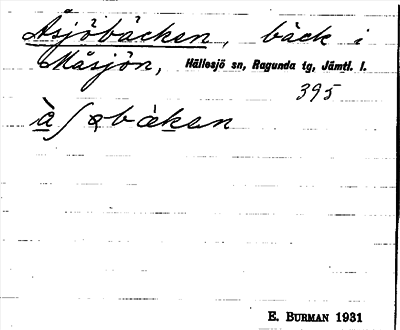 Åsjöbäcken, bäck i
Måsjön, Hällesjö sn, Ragunda tg, Jämtl. l.
395
E. BURMAN 1931